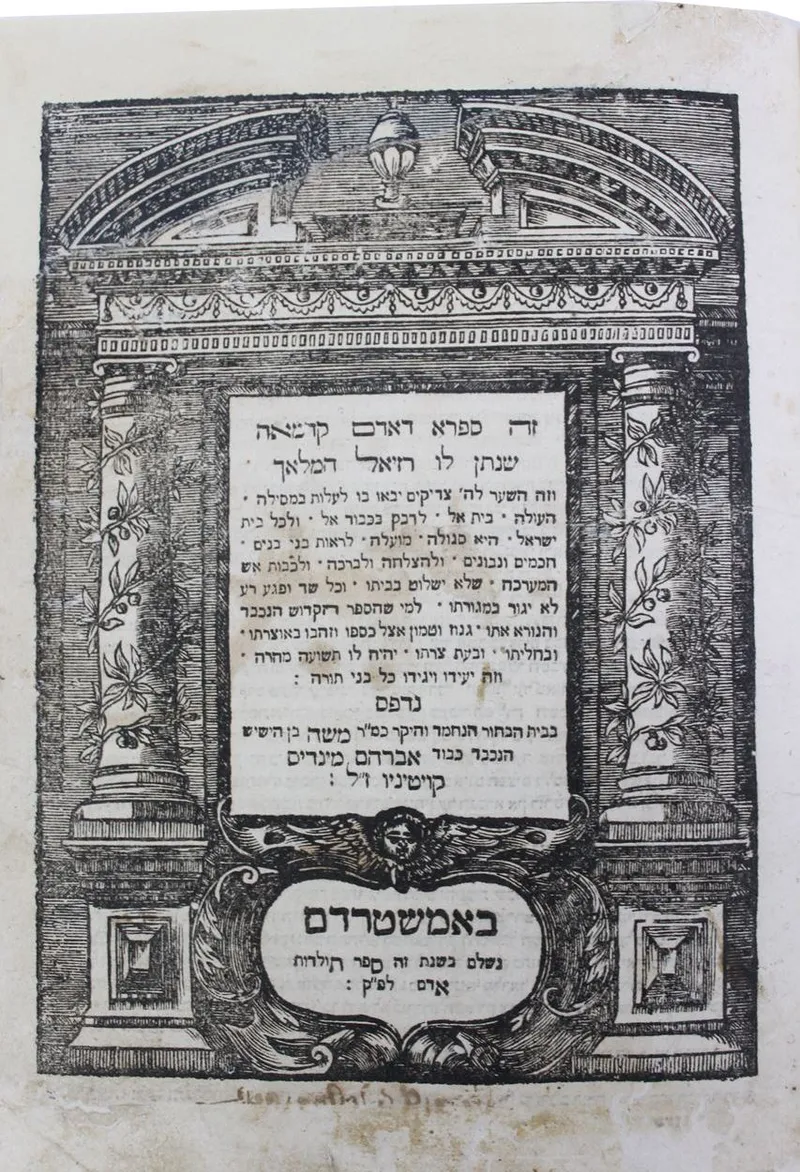 זה ספרא דאדם קדמאה
שנתן לו רזיאל המלאך
וזה השער לה׳ צדיקים יבאו בו לעלות במסילה ·
העולה · בית אל · לדבק בכבוד אל · ולכל בית
ישראל · היא סגולה · מועלה · לראות בני בנים ·
חכמים ונבונים · ולהצלחה ולברכה · ולכבות אש
המערכה · שלא ישלוט בביתו · וכל שד ופגע רע
לא יגור במגורתו · למי שהספר הקדוש הנכבד
והנורא אתו · גנוז וטמון אצל כספו וזהבו באוצרתו ·
ובחליתו · ובעת צרתו · יהיה לו תשועה מהרה ·
וזה יעידו ויגידו כל בני תורה :
נדפס
בבית הבחור הנחמד והיקר כמ״ר משה בן הישיש
הנכבד כבוד אברהם מינדיס
קויטיניו ז״ל :
באמשטרדם
נשלם בשנת זה ספר תולדות
אדם לפ״ק :